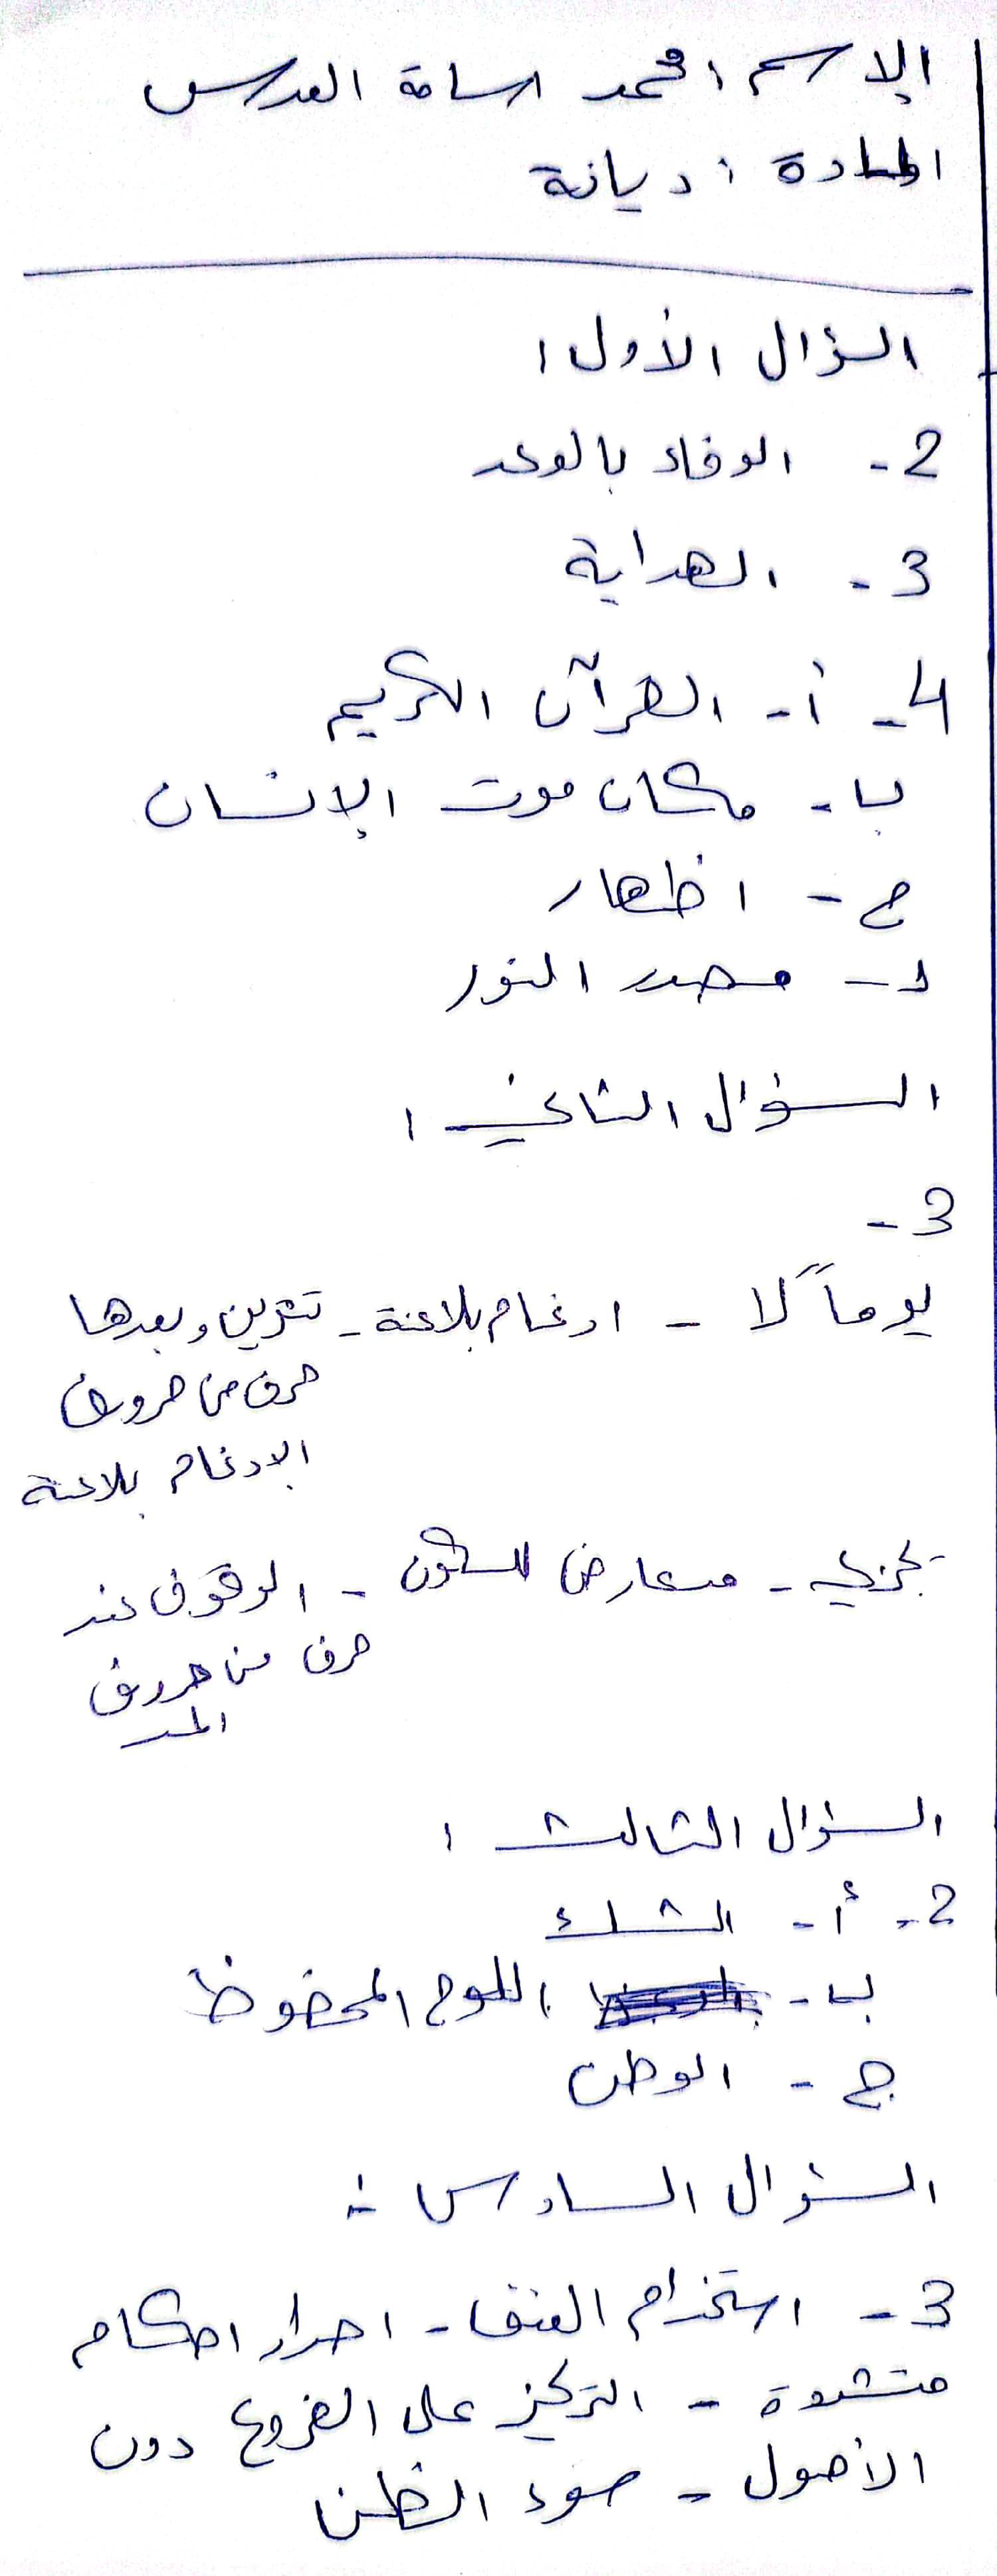 الاسم : محمد اسامة العدس
المادة : ديانة
السؤال الأول :
2- الوفاء بالوعد
3- الهداية
4- أ- القرآن الكريم
ب- مكان موت الإنسان
ج- اظهار
د- مصدر النور
السؤال الثاني :
3-
يوماً لا - ادغام بلاغنة - تنوين وبعدها
حرف من حروف
الإدغام بلاغنة
تجزي - مد عارض للسكون - الوقوف عند
حرف من حروف
المد
السؤال الثالث :
2- أ- الشك
ب- اللوح المحفوظ
ج- الوطن
السؤال السادس :
3- استخدام العنف - اصدار احكام
متشددة - التركيز على الفروع دون
الأصول - سوء الظن